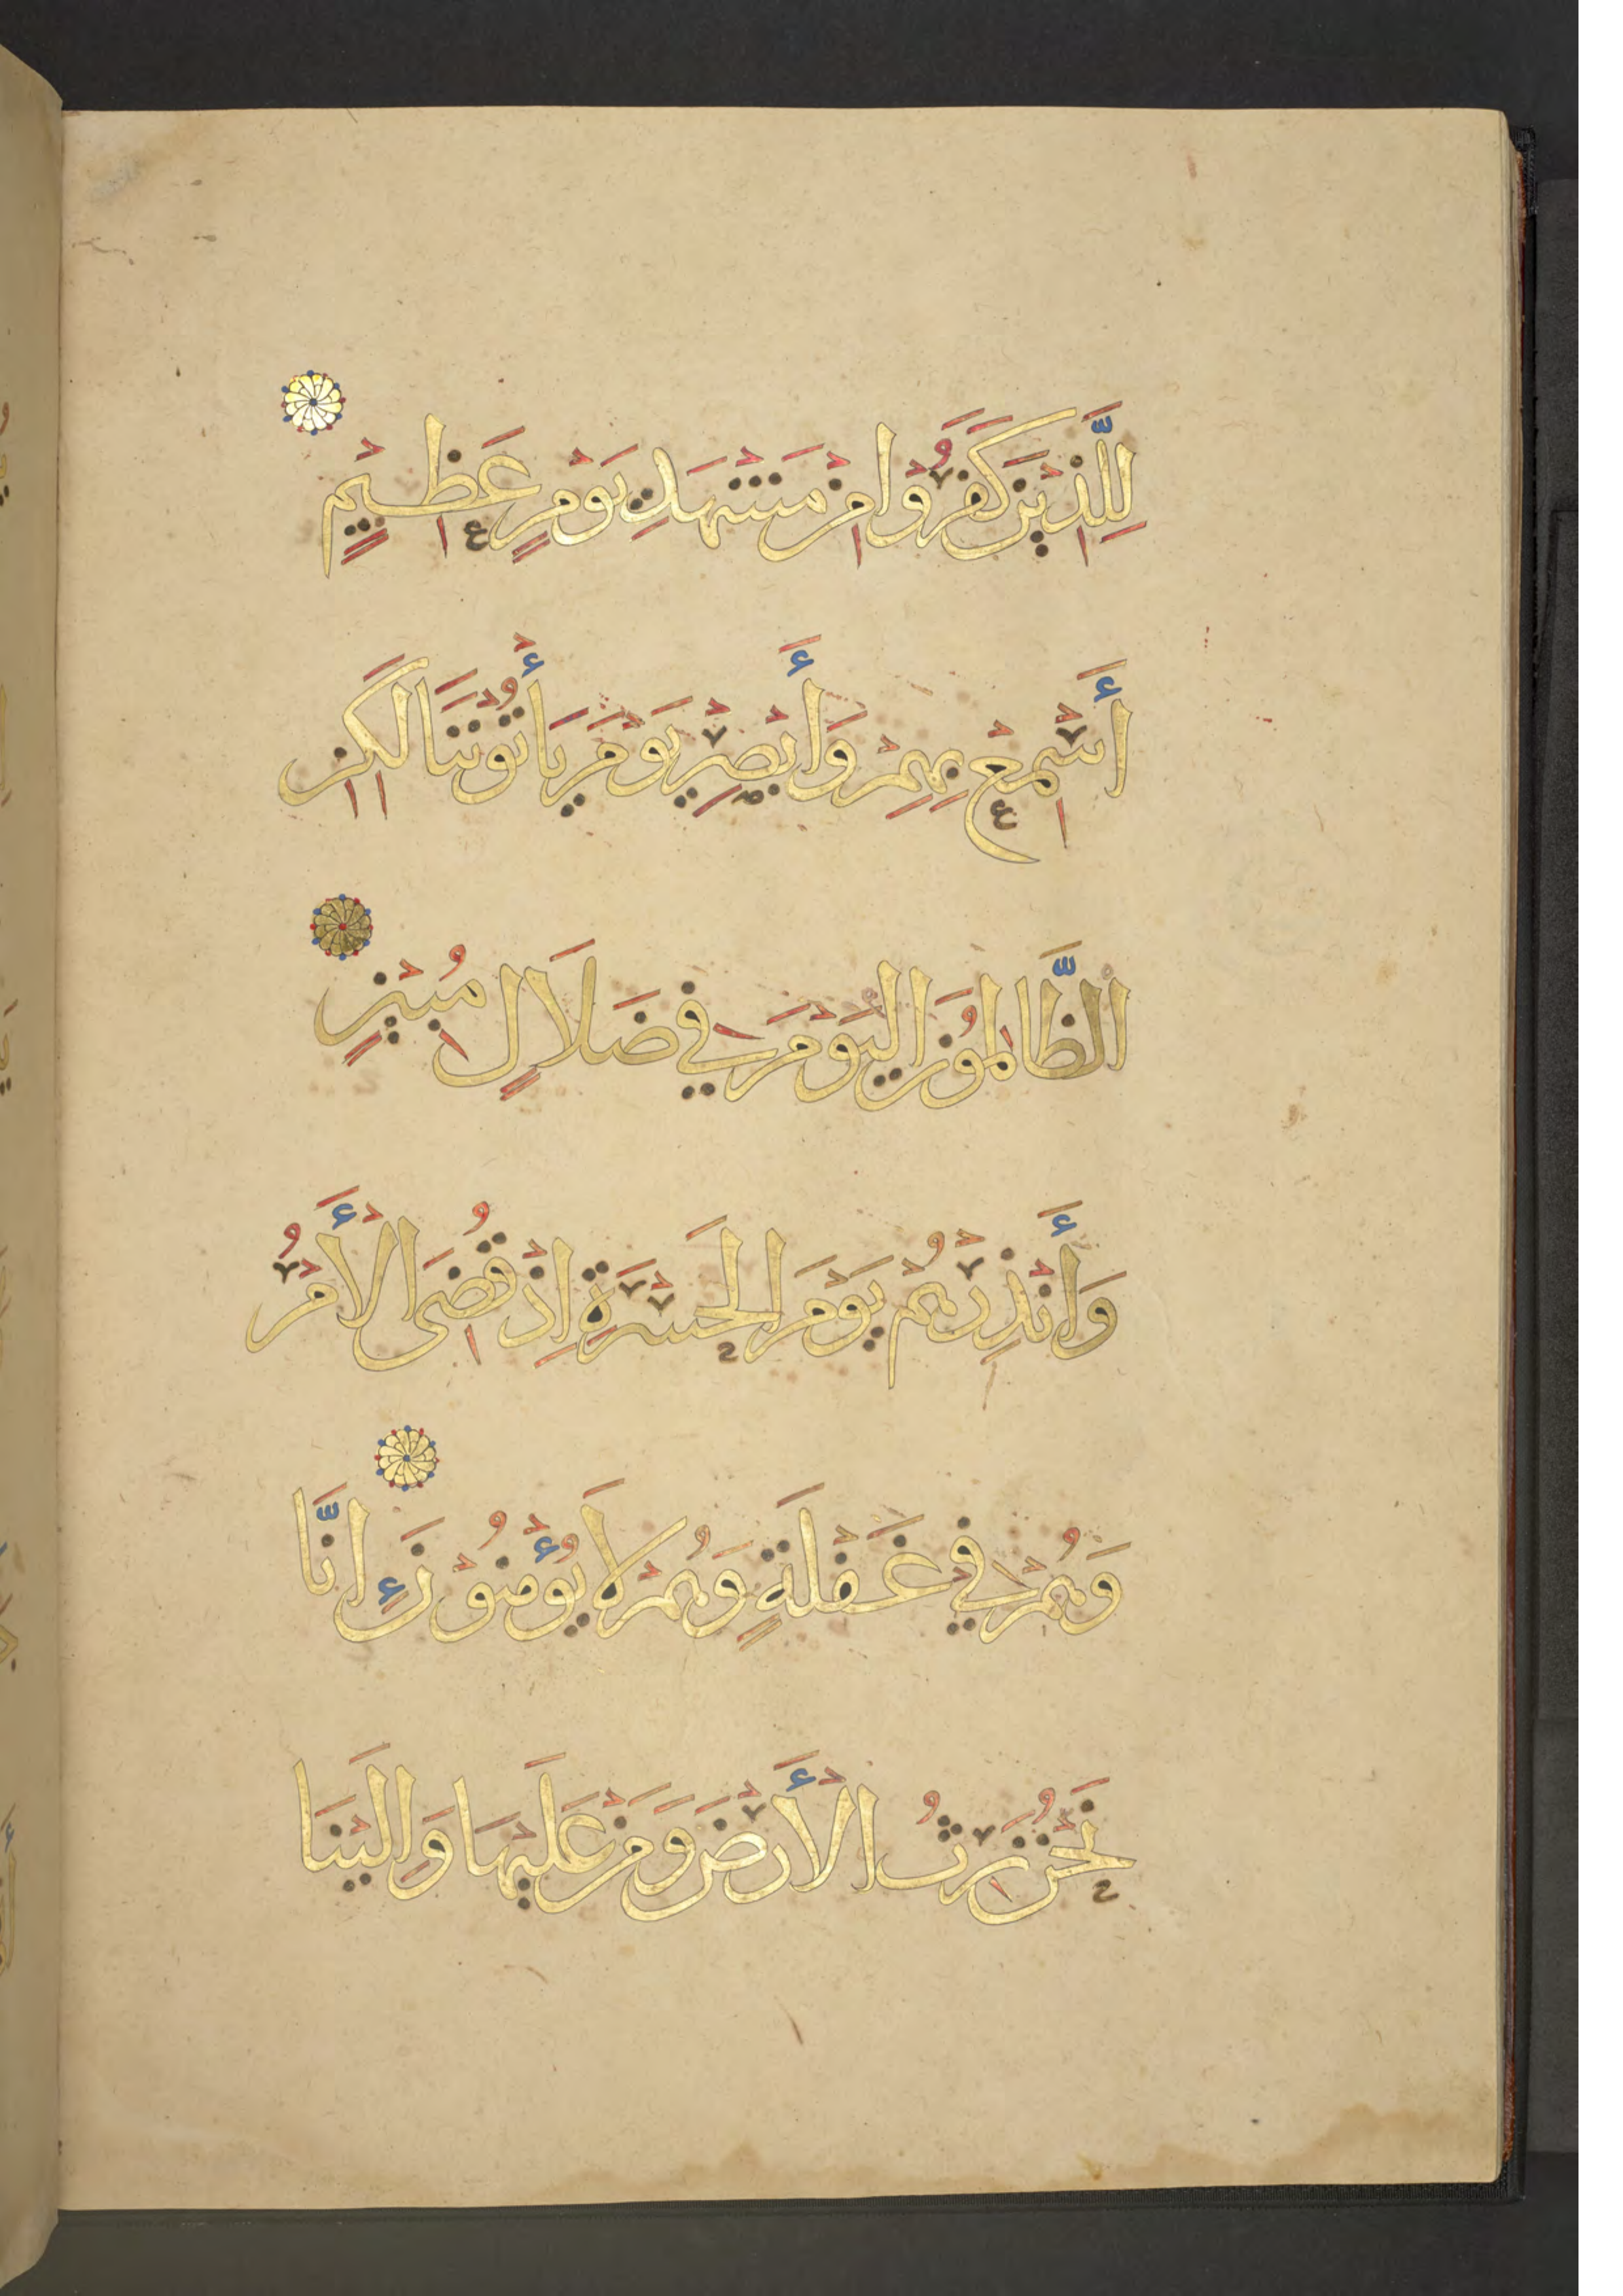 لِلَّذِيْنَ كَفَرُوْا مِنْ مَشْهَدِ يَوْمٍ عَظِيْمٍ
أَسْمِعْ بِهِمْ وَأَبْصِرْ يَوْمَ يَأْتُوْنَنَا لَكِنِ
الظَّالِمُوْنَ الْيَوْمَ فِي ضَلَالٍ مُبِيْنٍ
وَأَنْذِرْهُمْ يَوْمَ الْحَسْرَةِ اِذْ قُضِيَ الْأَمْرُ
وَهُمْ فِي غَفْلَةٍ وَهُمْ لَا يُؤْمِنُوْنَ اِنَّا
نَحْنُ نَرِثُ الْأَرْضَ وَمَنْ عَلَيْهَا وَاِلَيْنَا